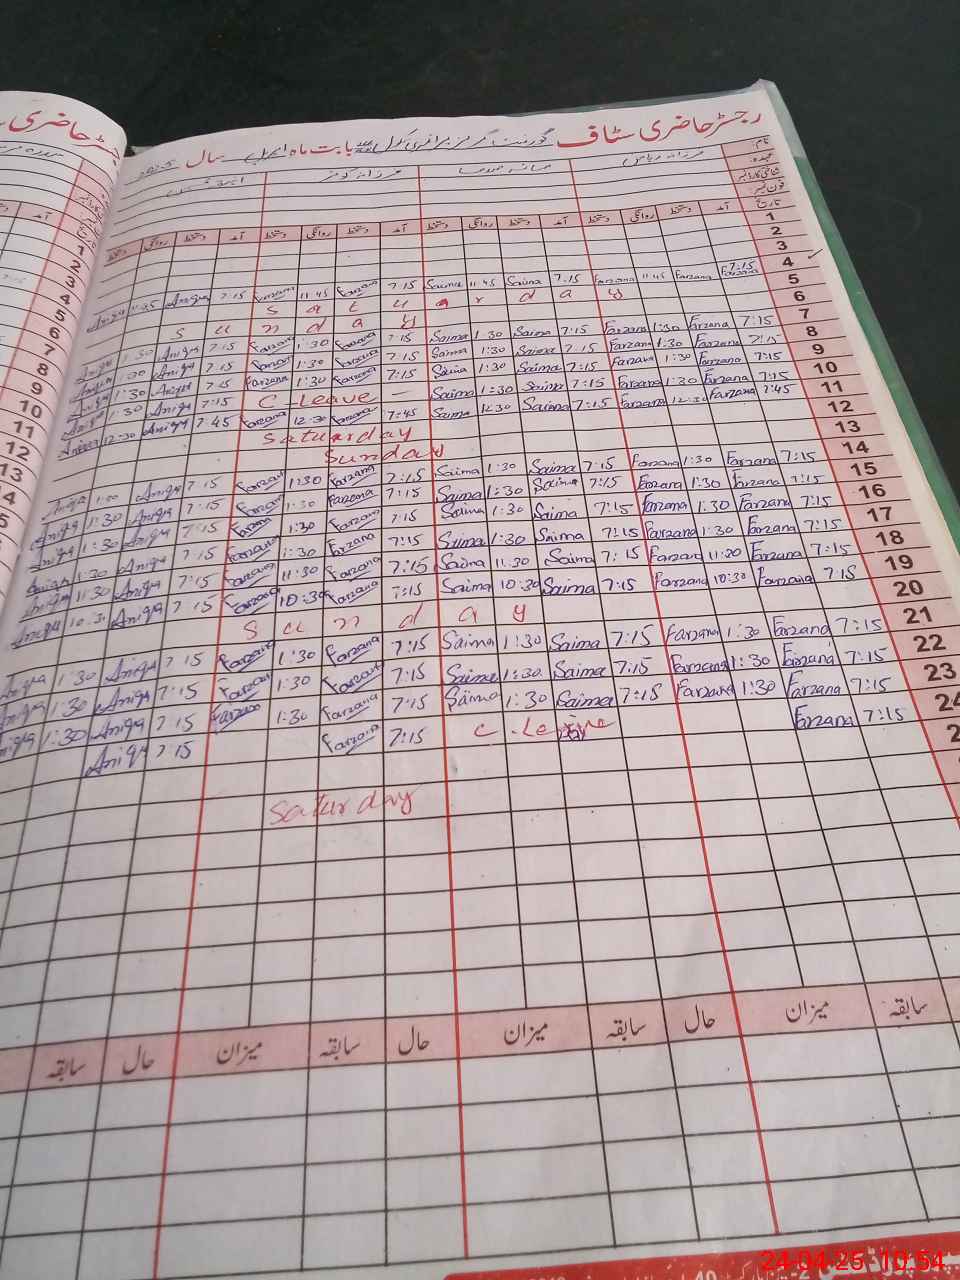 رجسٹر حاضری سٹاف گورنمنٹ گرلز پرائمری سکول بابت ماہ اپریل سال 2025
نام:
عہدہ:
شناختی کارڈ نمبر:
فون نمبر:
تاریخ آمد دستخط روانگی دستخط آمد دستخط روانگی دستخط آمد دستخط روانگی دستخط آمد دستخط روانگی دستخط
1
2
3
4 7:15 Farzana Farzana 11:45 Farzana 7:15 Saima 11:45 Saima 7:15 Farzana 11:45 Farzana 7:15 Aniqa 11:45 Aniqa
5 Saturday
6 Sunday
7 7:15 Farzana 1:30 Farzana 7:15 Saima 1:30 Saima 7:15 Farzana 1:30 Farzana 7:15 Aniqa 1:30 Aniqa
8 7:15 Farzana 1:30 Farzana 7:15 Saima 1:30 Saima 7:15 Farzana 1:30 Farzana 7:15 Aniqa 1:30 Aniqa
9 7:15 Farzana 1:30 Farzana 7:15 Saima 1:30 Saima 7:15 Farzana 1:30 Farzana 7:15 Aniqa 1:30 Aniqa
10 7:15 Farzana 1:30 Farzana 7:15 Saima 1:30 Saima C-Leave 7:15 Aniqa 1:30 Aniqa
11 7:45 Farzana 12:30 Farzana 7:15 Saima 12:30 Saima 7:45 Farzana 12:30 Farzana 7:45 Aniqa 12:30 Aniqa
12 Saturday
13 Sunday
14 7:15 Farzana 1:30 Farzana 7:15 Saima 1:30 Saima 7:15 Farzana 1:30 Farzana 7:15 Aniqa Aniqa
15 7:15 Farzana 1:30 Farzana 7:15 Saima 1:30 Saima 7:15 Farzana 1:30 Farzana 7:15 Aniqa 1:30 Aniqa
16 7:15 Farzana 1:30 Farzana 7:15 Saima 1:30 Saima 7:15 Farzana 1:30 Farzana 7:15 Aniqa 1:30 Aniqa
17 7:15 Farzana 1:30 Farzana 7:15 Saima 1:30 Saima 7:15 Farzana 1:30 Farzana 7:15 Aniqa 1:30 Aniqa
18 7:15 Farzana 11:30 Farzana 7:15 Saima 11:30 Saima 7:15 Farzana 11:30 Farzana 7:15 Aniqa 11:30 Aniqa
19 7:15 Farzana 10:30 Farzana 7:15 Saima 10:30 Saima 7:15 Farzana 10:30 Farzana 7:15 Aniqa 10:30 Aniqa
20 Sunday
21 7:15 Farzana 1:30 Farzana 7:15 Saima 1:30 Saima 7:15 Farzana 1:30 Farzana 7:15 Aniqa 1:30 Aniqa
22 7:15 Farzana 1:30 Farzana 7:15 Saima 1:30 Saima 7:15 Farzana 1:30 Farzana 7:15 Aniqa 1:30 Aniqa
23 7:15 Farzana 1:30 Farzana 7:15 Saima 1:30 Saima 7:15 Farzana 1:30 Farzana 7:15 Aniqa 1:30 Aniqa
24 7:15 Farzana C-Leave 7:15 Farzana 7:15 Aniqa
Saturday
سابقہ میزان حال سابقہ میزان حال سابقہ میزان حال سابقہ
رجسٹر حاضری
1
2
3
4
5
6
7
8
9
10
11
12
13
14
24-04-25 10:54